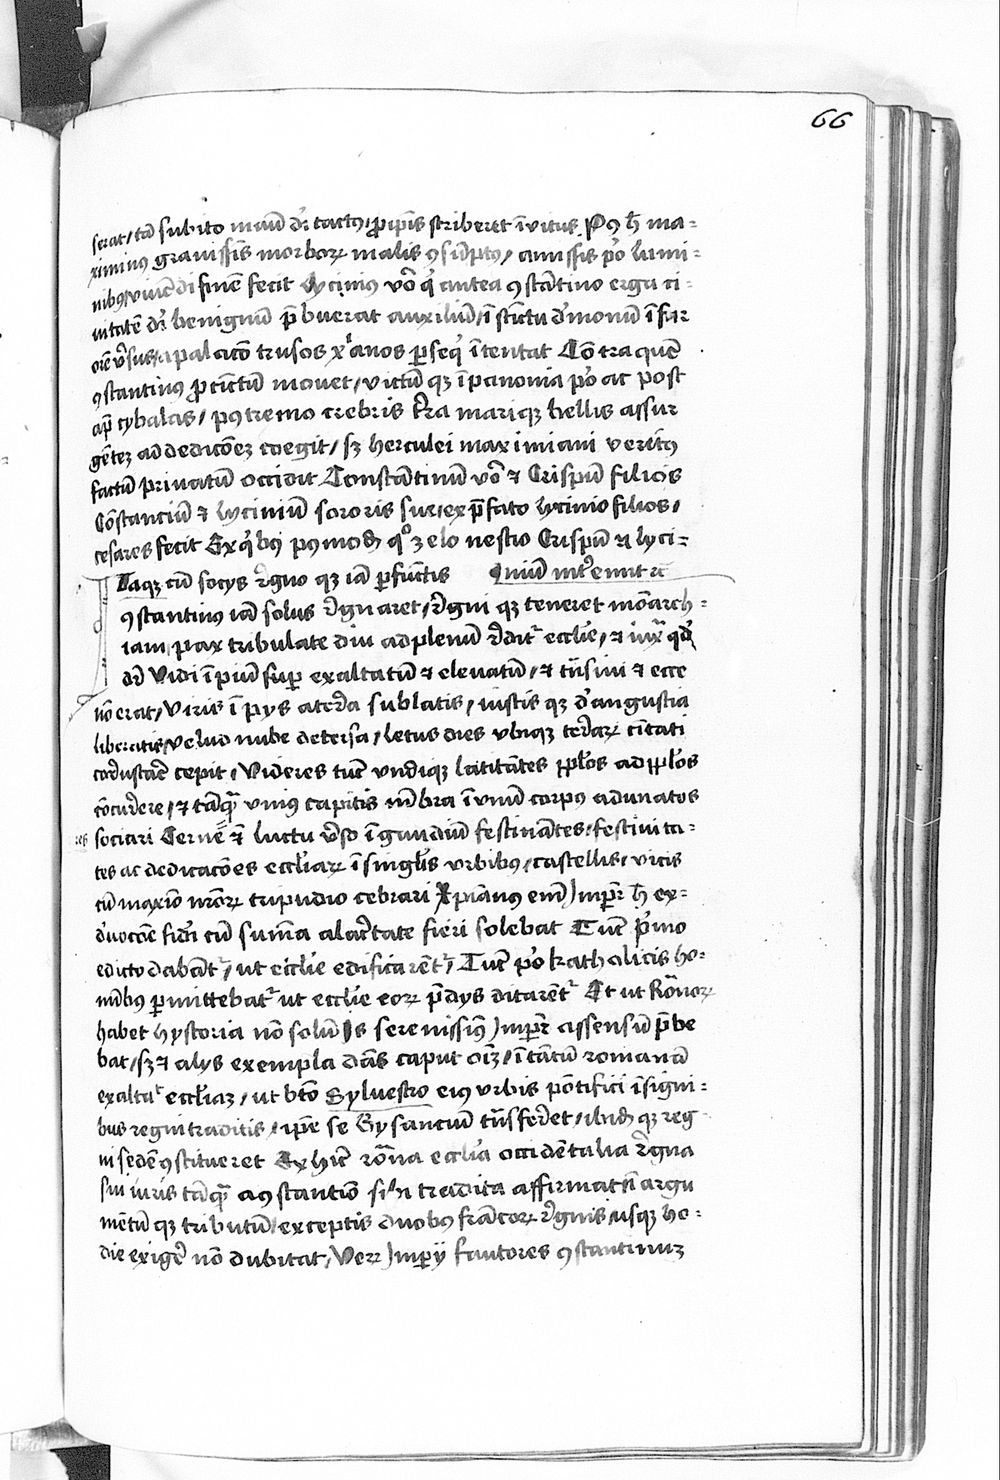 66
serat / tā subito manū dī tactꝰ / ꝓpriis scriberet īvitus Pꝰ h̄ ma-
ximinꝰ gravissis morborꝝ malis ꝯsūptꝰ / amissis po lumi-
nibꝰ / vivēdi finē fecit Lycinius vo q̄ antea ꝯstātino erga ci-
vitatē dī benignū p̄buerat auxiliū / ī stīctu dmonū ī fur
orē vsus / a palacio trusos xānos ꝑseq̄ ītentat Cōtra quē
ꝯstantinꝰ ꝓcītū movet / victū qꝫ ī panonia po ac post
ap cybalas / pꝰtremo crebris tra mariqꝫ bellis assur
gētē ad dedicōeꝫ coegit / sꝫ herculei maximiani veritꝰ
factū privatū occidit Constātinū vo ⁊ Crispū filios
Cōstanciū ⁊ lyciniū sororis sue / ex p̄fato lycinio filios /
cesares fecit Ex qbꝰ pꝰmodū qo zelo nescio Crispū ⁊ lyci-
Itaqꝫ cū socys rgno qꝫ iā ꝑfunctis niū interemit
ꝯstantinus iā solus rgnaret / rgni qꝫ teneret mōarch-
iam / pax tribulate diu ad plenū rddit ecclie / ⁊ iuxa qd
dr Vidi īpiū suꝑ exaltatū ⁊ elevatū / ⁊ tnsivi ⁊ ecce
nō erat / Viris īpys a terra sublatis / iustis qꝫ d angustia
liberatis / velud nube detersa / letus dies ubiqꝫ terrarꝝ cītati
coruscare cepit / Videres tūc undiqꝫ latitātes pplos ad pplos
cōcurrere / ⁊ tāqꝫ uniꝰ capitis mbra ī unū corpus adunatos
sociari Cernēs ⁊ luctu vso ī gaudiū festinātes / festivita-
tes ac dedicacōes eccliarꝝ ī singlis urbibꝰ / castellis / vicis
cū maxio nrorꝝ tripudio cebrari Xpianus em Impr h̄ ex-
duocōe fieri cū suma alacritate fieri solebat Tūc pmo
edicto dabāt / ut ecclie edificarēt / Tūc po katholicis ho-
mībus ꝑmittebat ut ecclie eorꝝ p̄dys ditarēt Et ut Romorꝝ
habet hystoria nō solū Is serenissīꝰ Impr assensū p̄be
bat / sꝫ ⁊ alys exempla dās caput oiꝫ / ī tātū romanā
exaltat eccliaꝫ / ut bto Sylvestro eiꝰ urbis pōtifici īsigni-
bus regni traditis / ipe se Bysanciū tnsferret / ibidē qꝫ reg
ni sedē ꝯstitueret Ex hic roma ecclia occidētalia rgna
sui iuris tāqꝫ a ꝯstantio sibi tradita affirmat ī argu
mētū qꝫ tributū / exceptis duobꝰ frācorꝝ rgnis / usqꝫ ho-
die exige nō dubitat / Verꝝ Impery fautores ꝯstantinuꝫ